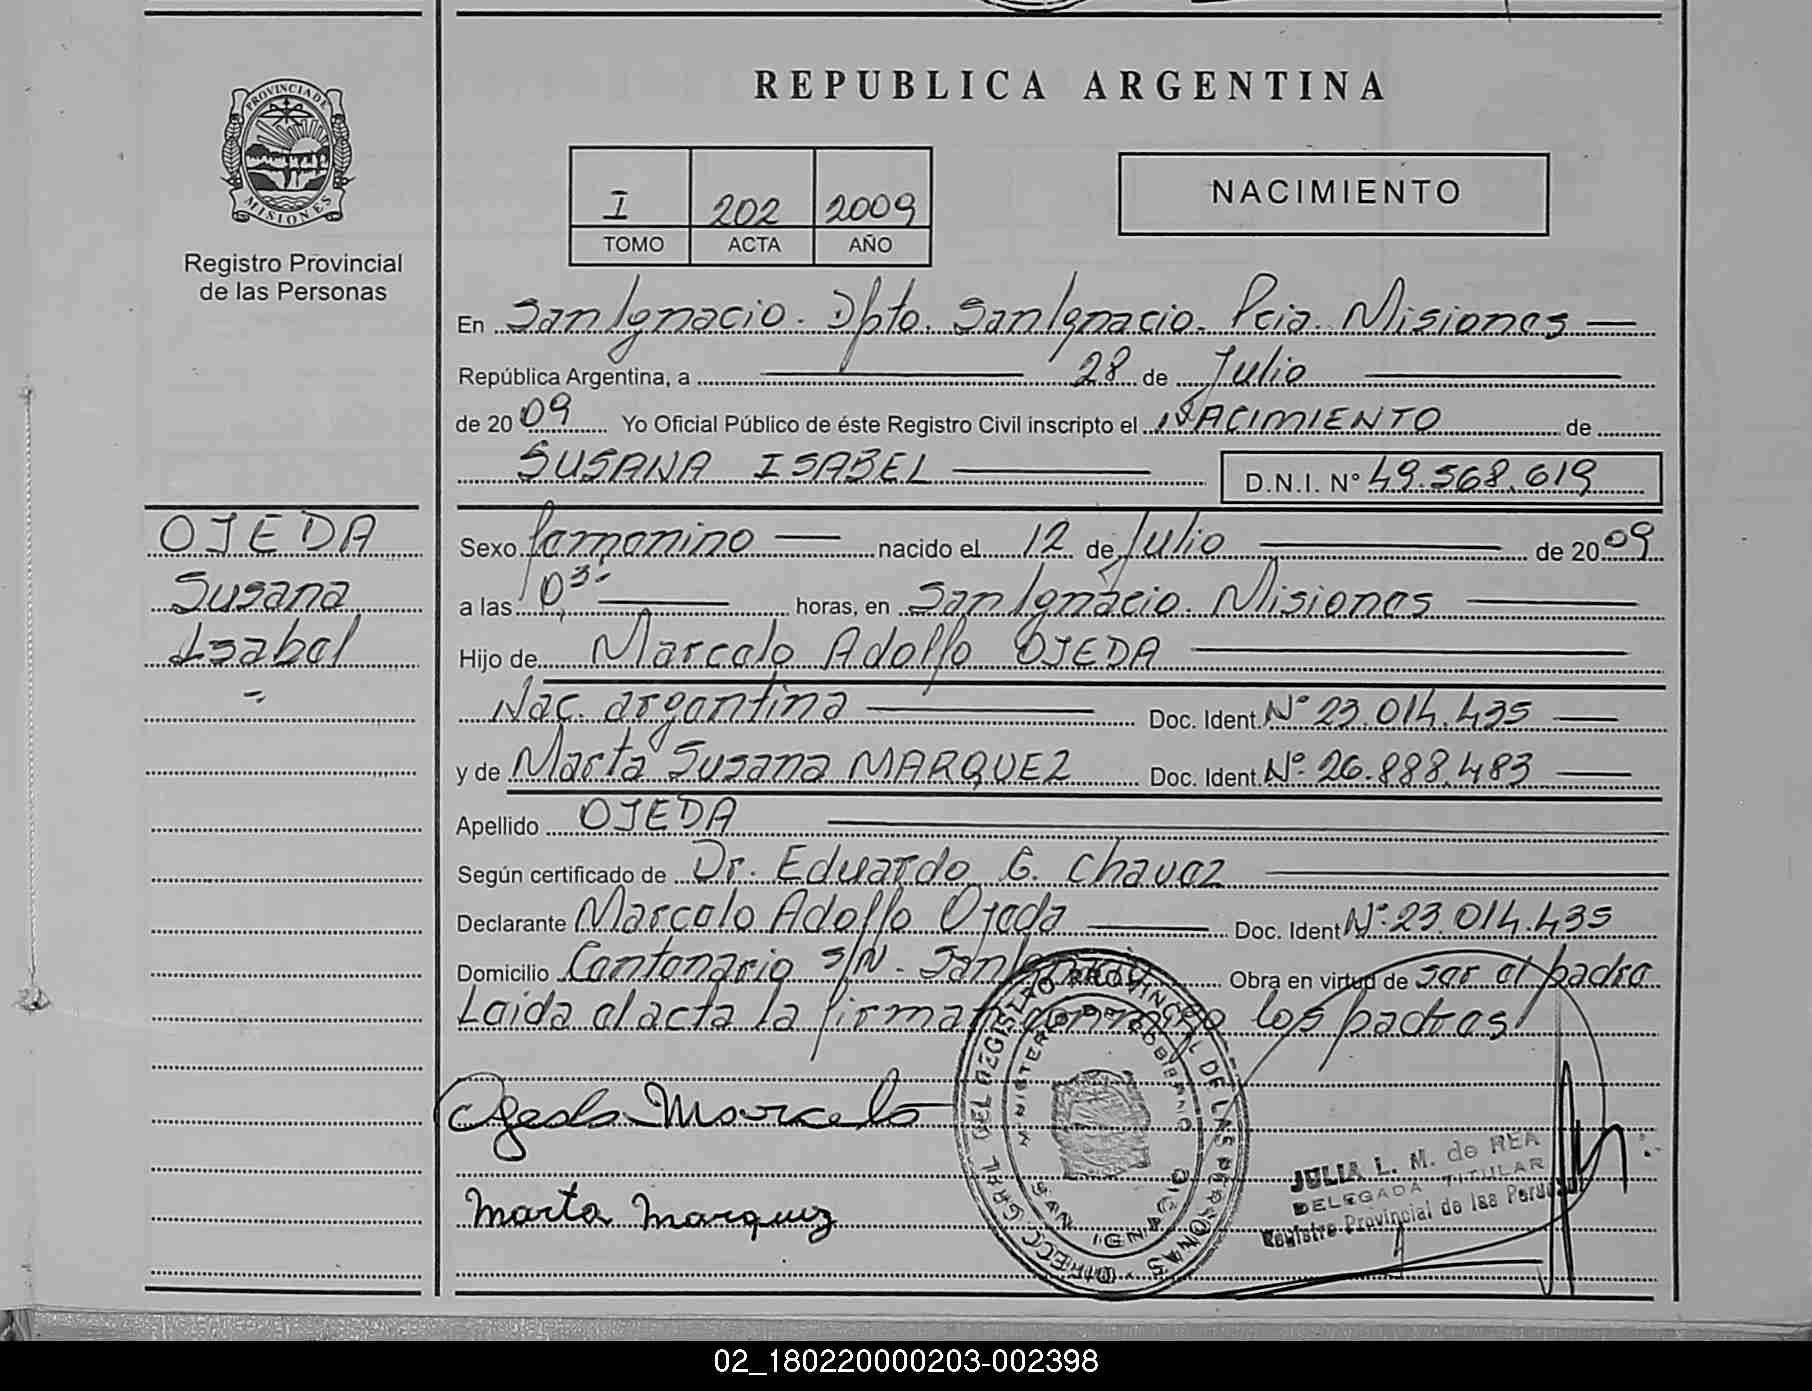 REPUBLICA ARGENTINA
PROVINCIA DE MISIONES
Registro Provincial
de las Personas
I 202 2009
TOMO ACTA AÑO
NACIMIENTO
En San Ignacio. Dpto. San Ignacio. Pcia. Misiones
República Argentina, a 28 de Julio
de 2009 Yo Oficial Público de éste Registro Civil inscripto el NACIMIENTO de
SUSANA ISABEL D.N.I. N° 49.568.619
OJEDA
Susana
Isabel
Sexo femenino nacido el 12 de Julio de 2009
a las 03- horas, en San Ignacio. Misiones
Hijo de Marcelo Adolfo OJEDA
Nac. argentina Doc. Ident. N° 23.014.435
y de Marta Susana MARQUEZ Doc. Ident. N° 26.888.483
Apellido OJEDA
Según certificado de Dr. Eduardo G. Chavez
Declarante Marcelo Adolfo Ojeda Doc. Ident N° 23.014.435
Domicilio Centenario S/N. San Ignacio Obra en virtud de ser el padre
Leida el acta la firman conmigo los padres
Ojeda Marcelo
Marta Marquez
DIRECC. GRAL DEL REGISTRO PROVINCIAL DE LAS PERSONAS
MINISTERIO DE GOBIERNO
SAN IGNACIO
JULIA L. M. de REA
DELEGADA TITULAR
Registro Provincial de las Personas
02_180220000203-002398